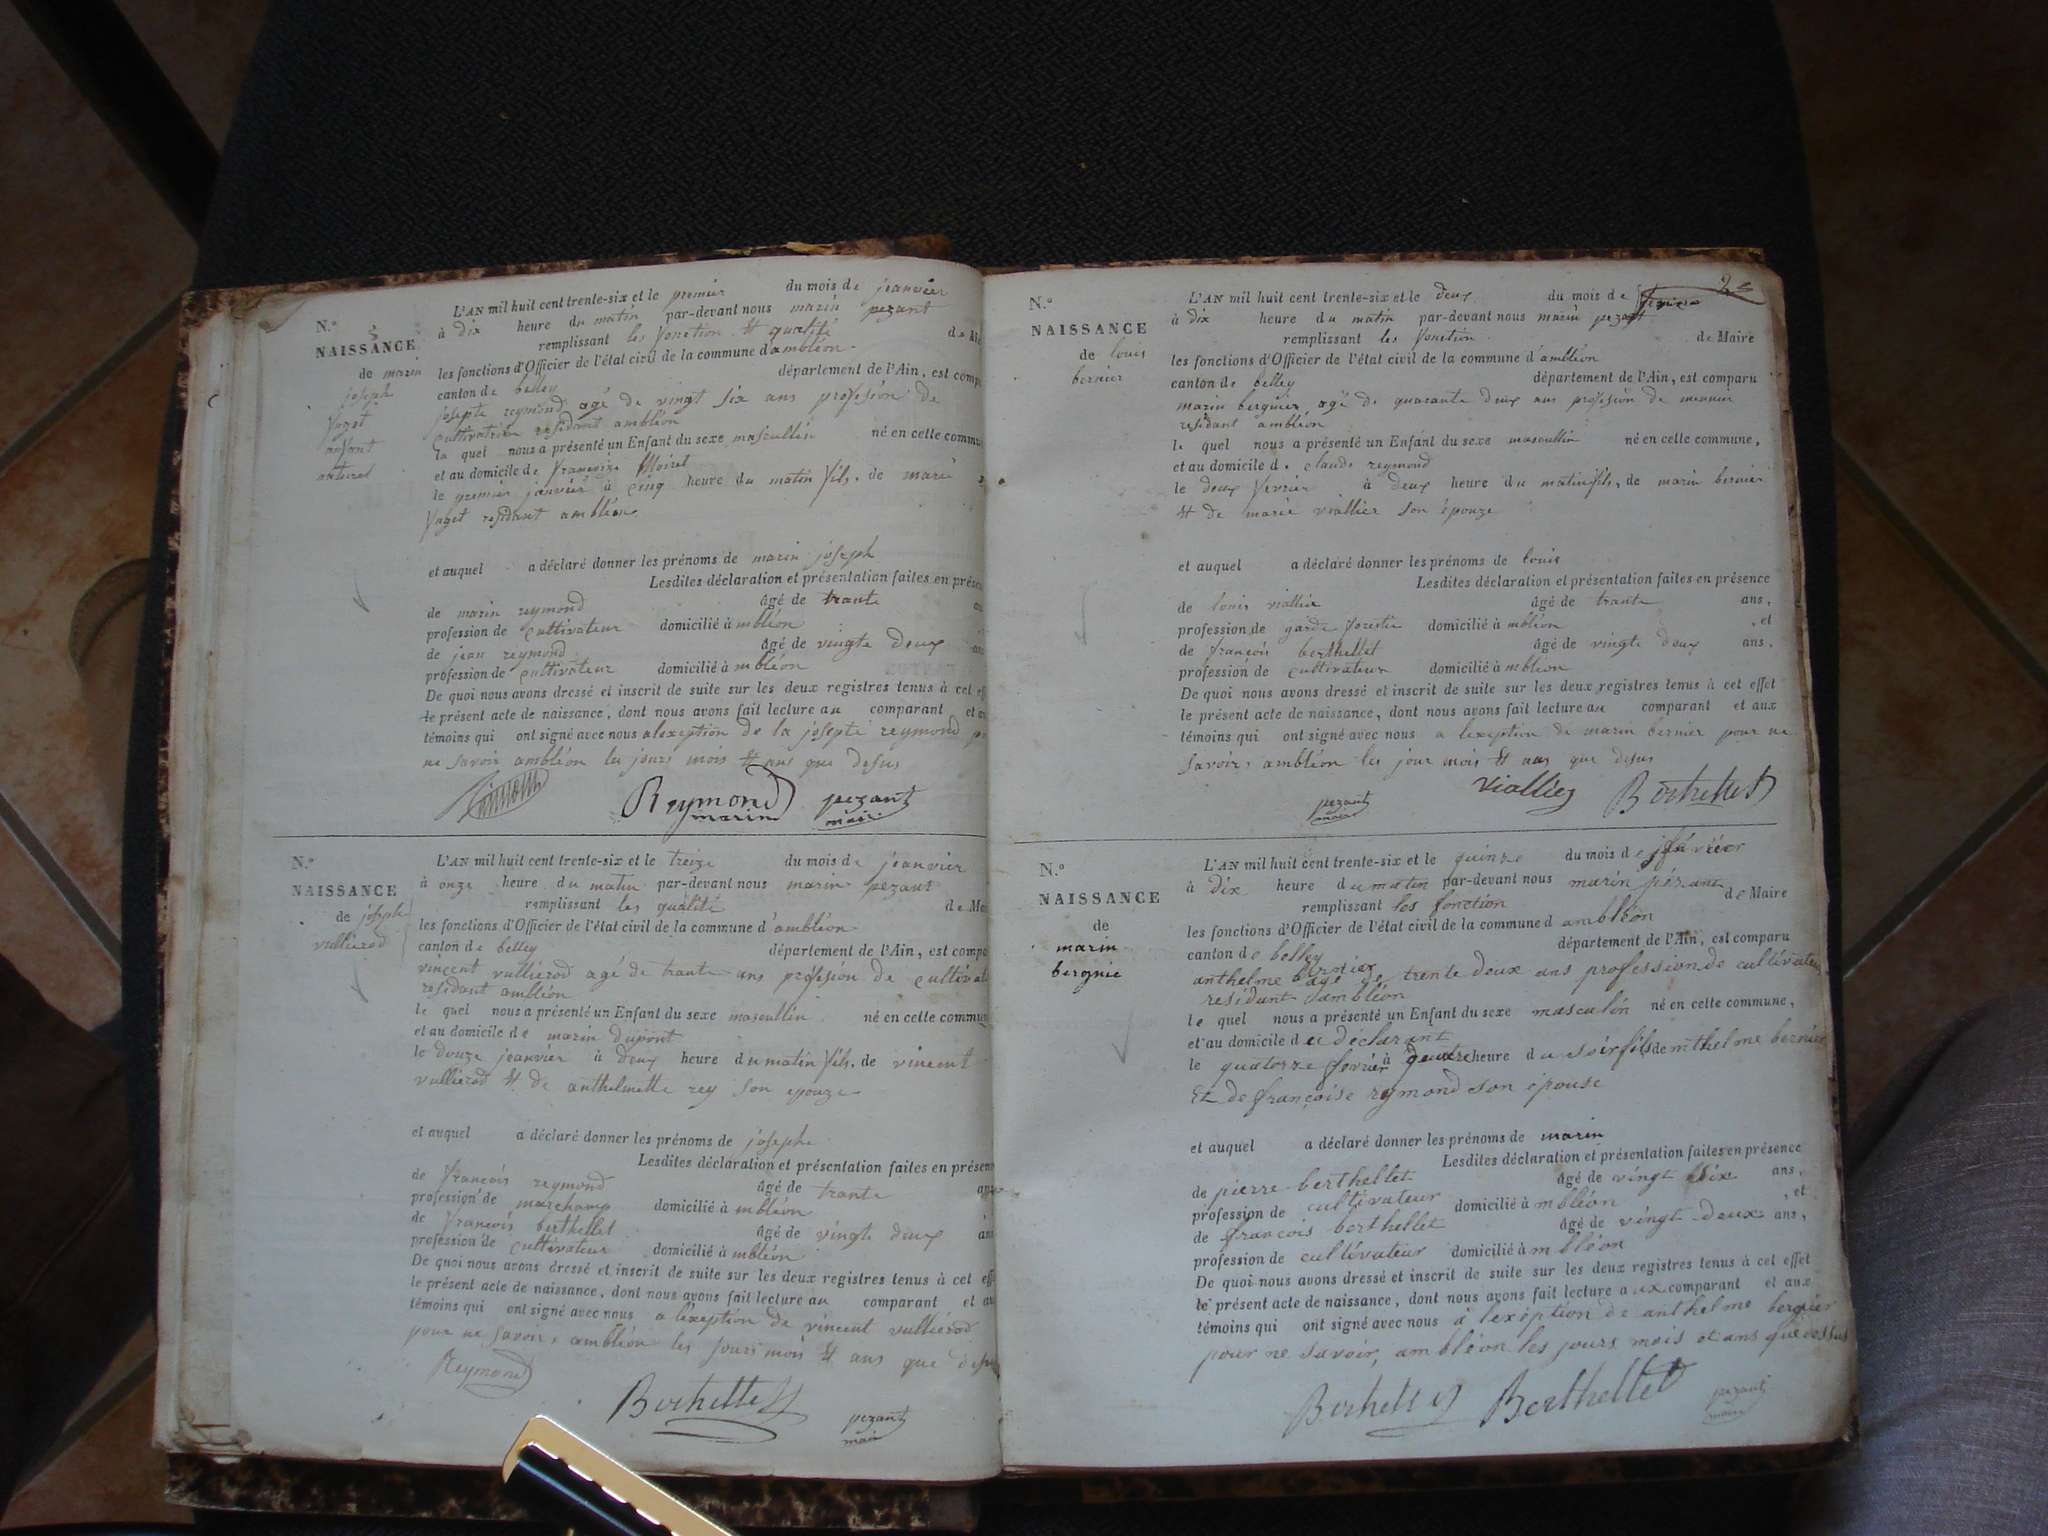 N.º
NAISSANCE
de marin
joseph
anfant
naturel
L'AN mil huit cent trente-six et le premier du mois de jeanvier
à dix heure du matin par-devant nous marin pezant
remplissant les fonction et qualité de
les fonctions d'Officier de l'état civil de la commune d'ambléon
canton de belley département de l'Ain, est
josepte reymond agé de vingt six ans profesion de
cultivatrice residant ambléon
la quel nous a présenté un Enfant du sexe mascullin né en cette
et au domicile de françoize
le premier janvier à cinq heure du matin fils, de marie
residant ambléon
et auquel a déclaré donner les prénoms de marin joseph
Lesdites déclaration et présentation faites en
de marin reymond âgé de trante
profession de cultivateur domicilié à mbléon
de jean reymond âgé de vingte deux
profession de cultivateur domicilié à mbléon
De quoi nous avons dressé et inscrit de suite sur les deux registres tenus à cet
le présent acte de naissance, dont nous avons fait lecture au comparant et
témoins qui ont signé avec nous a lexeption de la josepte reymond
ne savoir ambléon les jours mois et ans que desus
Reymond marin pezant maire
N.º
NAISSANCE
de joseph
vullierod
L'AN mil huit cent trente-six et le treize du mois de jeanvier
à onze heure du matin par-devant nous marin pezant
remplissant les qualité de
les fonctions d'Officier de l'état civil de la commune d'ambléon
canton de belley département de l'Ain, est
vincent vullierod agé de trante ans profesion de
residant ambléon
le quel nous a présenté un Enfant du sexe mascullin né en cette
et au domicile de marin dupont
le douze jeanvier à deux heure du matin fils, de vincent
vullierod et de anthelmette rey son epouze
et auquel a déclaré donner les prénoms de josephe
Lesdites déclaration et présentation faites en
de françois reymond âgé de trante
profession de marchamp domicilié à mbléon
de françois berthellet âgé de vingte deux
profession de cultivateur domicilié à mbléon
De quoi nous avons dressé et inscrit de suite sur les deux registres tenus à cet
le présent acte de naissance, dont nous avons fait lecture au comparant et
témoins qui ont signé avec nous a lexeption de vincent vullierod
pour ne savoir, ambléon les jours mois et ans que
Reymond
pezant maire
2
N.º
NAISSANCE
de louis
bernier
L'AN mil huit cent trente-six et le deux du mois de fevrier
à dix heure du matin par-devant nous marin pezant
remplissant les fonction de Maire
les fonctions d'Officier de l'état civil de la commune d'ambléon
canton de belley département de l'Ain, est comparu
marin bergnier agé de quarante deux ans profesion de
residant ambléon
le quel nous a présenté un Enfant du sexe mascullin né en cette commune,
et au domicile de claude reymond
le deux fevrier à deux heure du matin fils, de marin bernier
et de marie viallier son épouze
et auquel a déclaré donner les prénoms de louis
Lesdites déclaration et présentation faites en présence
de louis viallier âgé de trante ans,
profession de garde forestie domicilié à mbléon, et
de françois berthellet âgé de vingte deux ans.
profession de cultivateur domicilié à mbléon
De quoi nous avons dressé et inscrit de suite sur les deux registres tenus à cet effet
le présent acte de naissance, dont nous avons fait lecture au comparant et aux
témoins qui ont signé avec nous a lexeption de marin bernier pour ne
savoir, ambléon les jour mois et ans que desus
pezant maire Viallier
N.º
NAISSANCE
de
marin
bergnie
L'AN mil huit cent trente-six et le quinze du mois de février
à dix heure du matin par-devant nous marin pézant
remplissant les fonction de Maire
les fonctions d'Officier de l'état civil de la commune d ambléon
canton de belley département de l'Ain, est comparu
anthelme bernier agé de trente deux ans profession de cultivateur
résidant ambléon
le quel nous a présenté un Enfant du sexe masculin né en cette commune,
et au domicile de déclarant
le quatorze fevrier à heure du soir fils de nthelme bernier
Et de françoise rymond son épouse
et auquel a déclaré donner les prénoms de marin
Lesdites déclaration et présentation faites en présence
de pierre berthellet âgé de vingt six ans,
profession de cultivateur domicilié à mbléon, et
de françois berthellet âgé de vingt deux ans,
profession de cultivateur domicilié à mbléon
De quoi nous avons dressé et inscrit de suite sur les deux registres tenus à cet effet
le présent acte de naissance, dont nous avons fait lecture aux comparant et aux
témoins qui ont signé avec nous à lexéption de anthelme bergnier
pour ne savoir, ambléon les jours mois et ans que dessus
Berthellet pezant maire